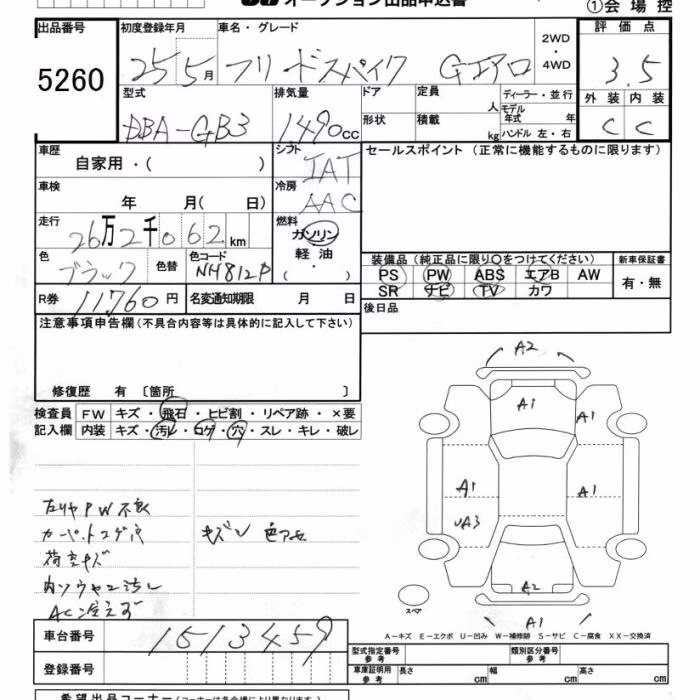 オークション出品申込書
①会場控
出品番号 初度登録年月 車名・グレード 2WD・4WD 評価点
5260 25 5月 フリードスパイク Gエアロ 3.5
型式 排気量 ドア 定員 人 ディーラー・並行 外装 内装
DBA-GB3 1490cc 形状 積載 kg モデル年式 年 ハンドル 左・右 C C
車歴 自家用・( ) シフト IAT セールスポイント (正常に機能するものに限ります)
車検 年 月( 日) 冷房 AAC
走行 26万2千062km 燃料 ガソリン
色 ブラック 色替 色コード NH812P 軽油 (・)
装備品(純正品に限り○をつけてください) 新車保証書
PS PW ABS エアB AW 有・無
SR ナビ TV カワ
R券 11,760円 名変通知期限 月 日 後日品
注意事項申告欄(不具合内容等は具体的に記入して下さい)
修復歴 有 〔箇所 〕
検査員 FW キズ・飛石・ヒビ割・リペア跡・×要
記入欄 内装 キズ・汚レ・コゲ・穴・スレ・キレ・破レ
左リヤPW不良
カーペットコゲ穴 キズ 色アセ
荷室キズ
汚レ
AC冷えず
A2
A1 A1
A1 A1
UA3
A2
A1
スペア
A-キズ E-エクボ U-凹み W-補修跡 S-サビ C-腐食 XX-交換済
車台番号 1513459
登録番号
型式指定番号 参考 類別区分番号 参考
車庫証明用 参考 長さ cm 幅 cm 高さ cm
希望出品コーナー